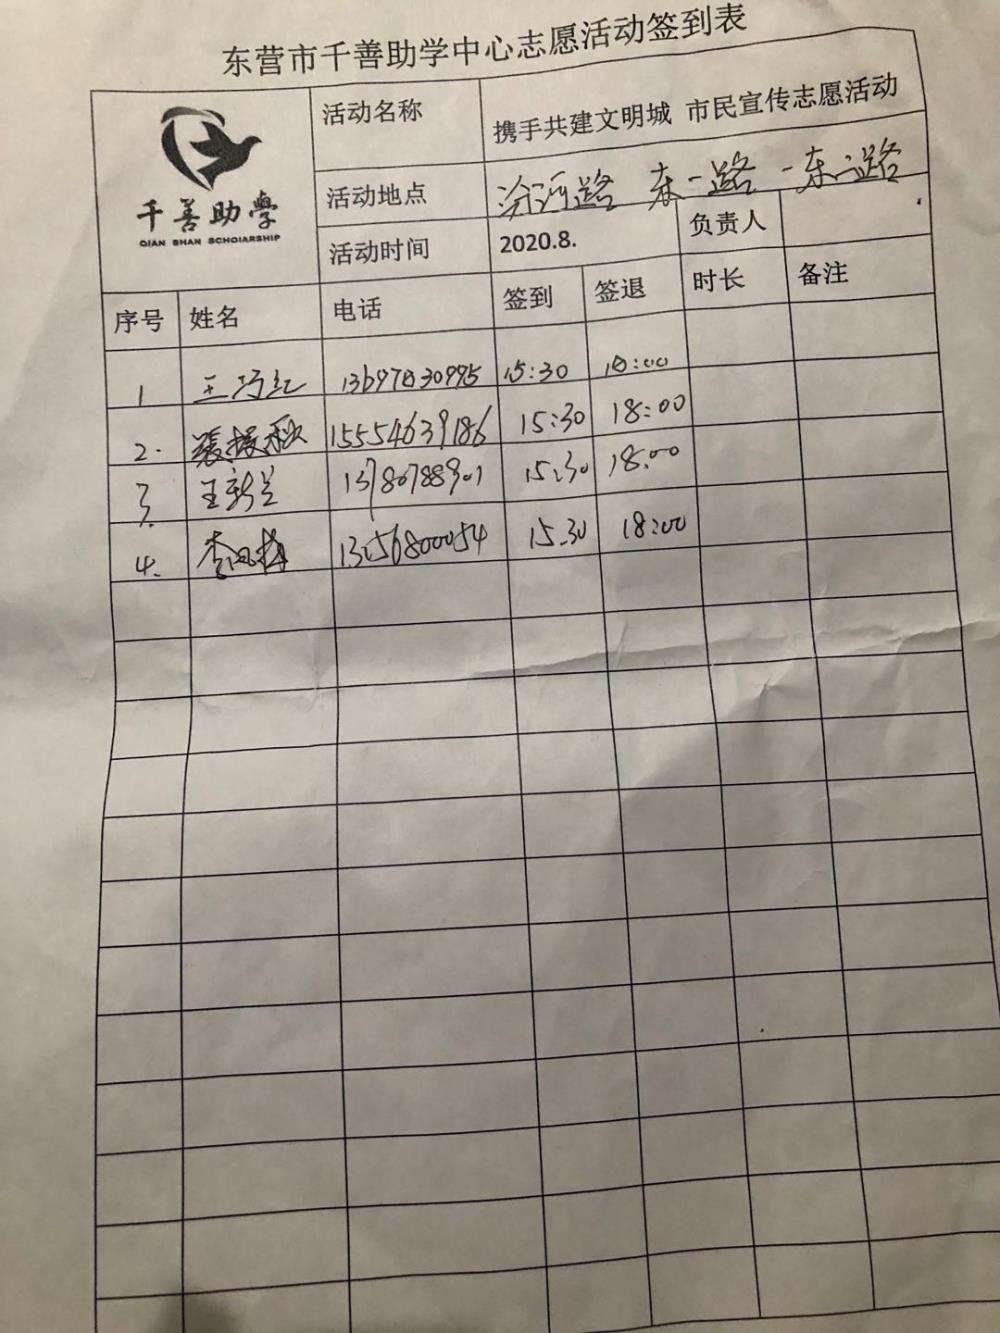 东营市千善助学中心志愿活动签到表
千善助学
QIAN SHAN SCHOIARSHIP
活动名称 携手共建文明城 市民宣传志愿活动
活动地点 汾河路 东一路 - 东二路
活动时间 2020.8. 负责人
序号 姓名 电话 签到 签退 时长 备注
1 王巧红 15:30 18:00
2. 15554639186 15:30 18:00
3. 王新兰 13780788901 15:30 18:00
4. 李凤梅 15.30 18:00